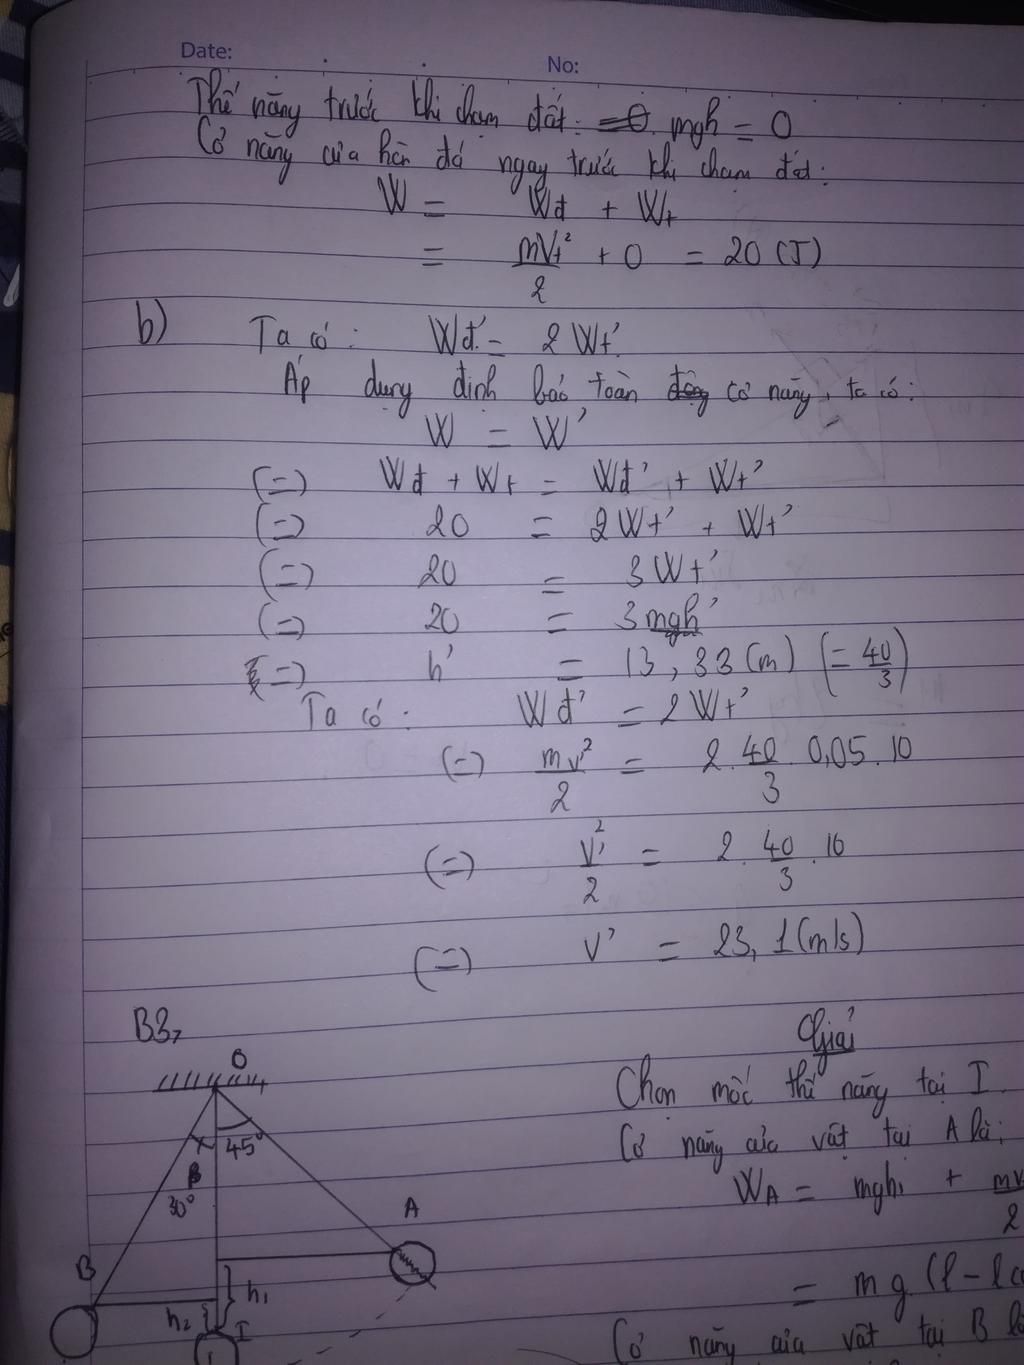 Date: No:
Thế năng trước khi chạm đất: mgh = 0
Cơ năng của hòn đá ngay trước khi chạm đất:
W = Wđ + Wt
= mVt²/2 + 0 = 20 (J)
b) Ta có: Wđ' = 2 Wt'
Áp dụng định bảo toàn động cơ năng, ta có:
W = W'
(=) Wđ + Wt = Wđ' + Wt'
(=) 20 = 2Wt' + Wt'
(=) 20 = 3Wt'
(=) 20 = 3mgh'
(=) h' = 13,33 (m) (= 40/3)
Ta có: Wđ' = 2Wt'
(=) mv'²/2 = 2. 40/3 . 0,05 . 10
(=) v'²/2 = 2. 40/3 . 10
(=) v' = 23,1 (m/s)
B3,
Giải
O
Chọn mốc thế năng tại I.
45°
Cơ năng của vật tại A là:
β
30°
WA = mgh₁ + mv/2
A
B
h₁
= mg (l - l
h₂
I
Cơ năng của vật tại B